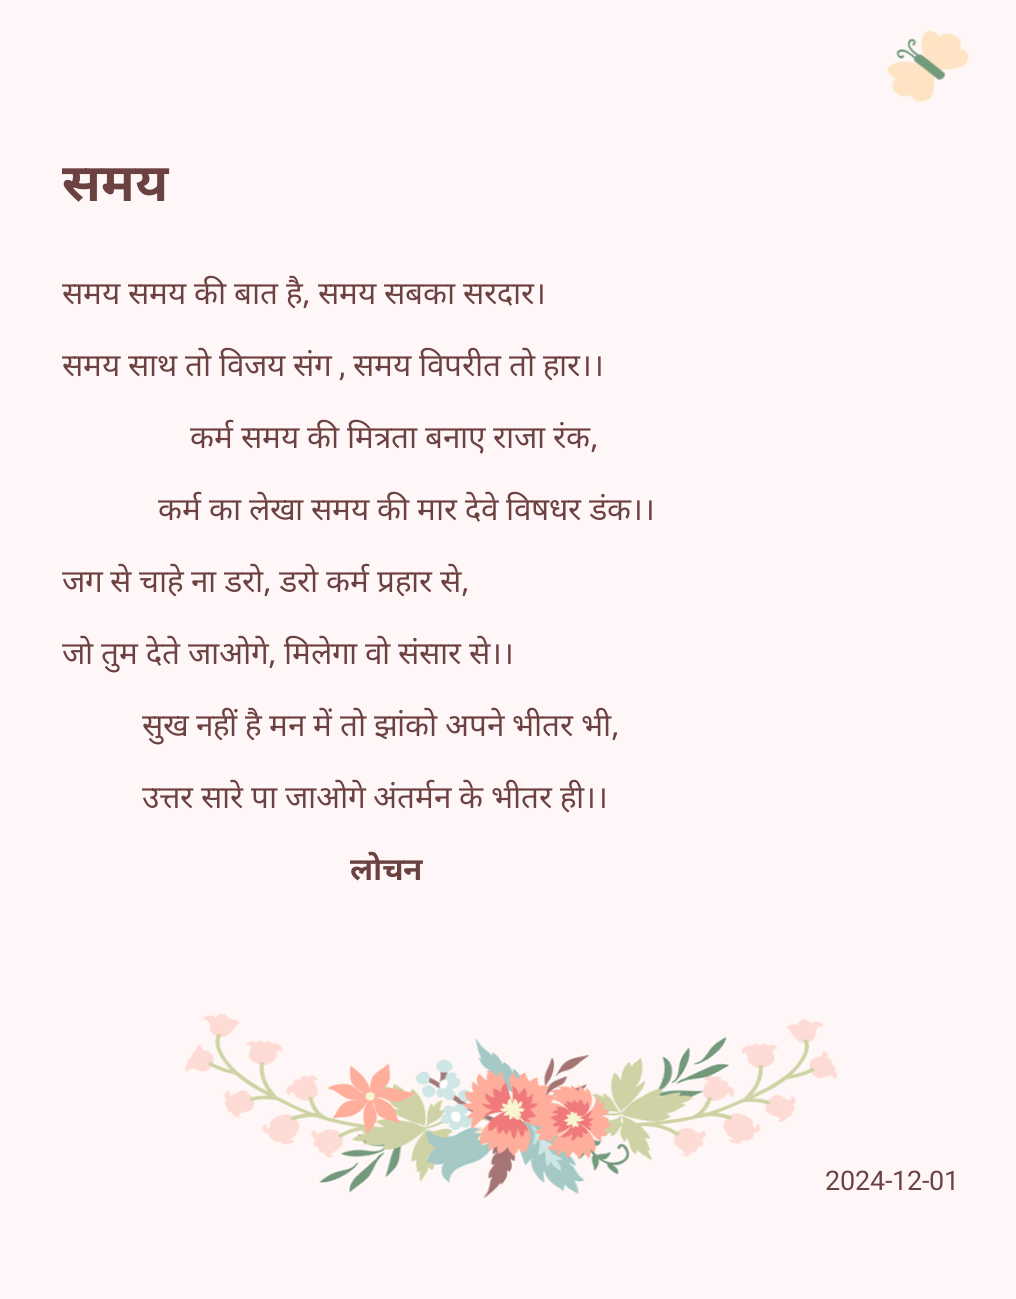 समय
समय समय की बात है, समय सबका सरदार।
समय साथ तो विजय संग , समय विपरीत तो हार।।
कर्म समय की मित्रता बनाए राजा रंक,
कर्म का लेखा समय की मार देवे विषधर डंक।।
जग से चाहे ना डरो, डरो कर्म प्रहार से,
जो तुम देते जाओगे, मिलेगा वो संसार से।।
सुख नहीं है मन में तो झांको अपने भीतर भी,
उत्तर सारे पा जाओगे अंतर्मन के भीतर ही।।
लोचन
2024-12-01